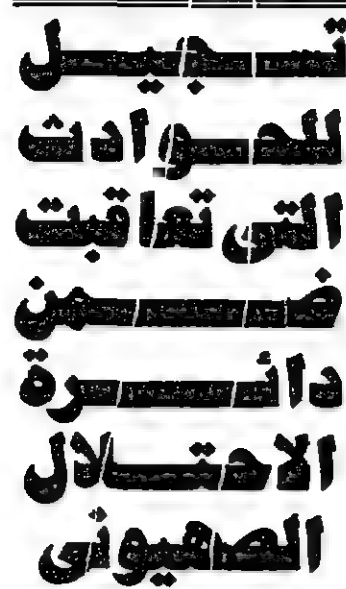 تسجيل
للحوادث
التي تعاقبت
ضمن
دائرة
الاحتلال
الصهيوني